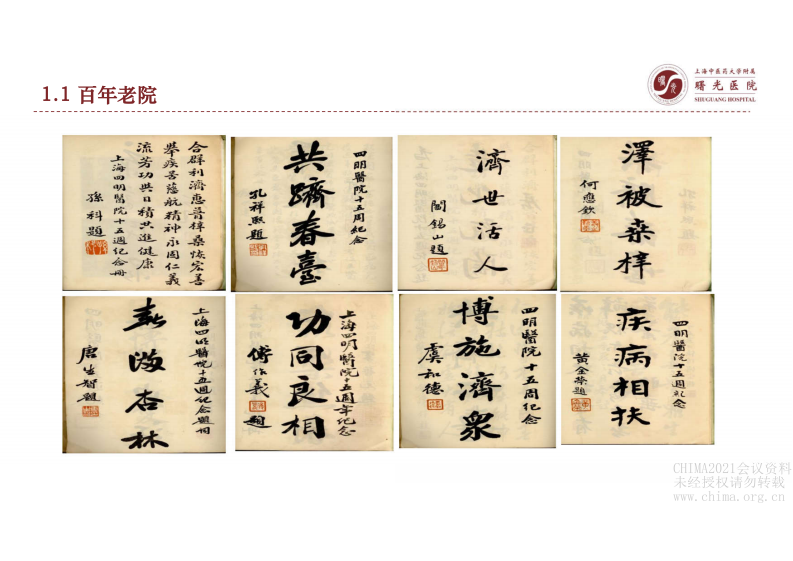 1.1 百年老院
上海中医药大学附属
曙光医院
SHUGUANG HOSPITAL
合群利濟惠普梓桑恢宏善
舉疾苦慈航精神永固仁義
流芳功與日積共進健康
上海四明醫院十五週紀念冊
孫科題
四明醫院十五周紀念
共躋春臺
孔祥熙題
濟世活人
閻錫山題
澤被桑梓
何應欽
上海四明醫院十五週紀念題詞
杏林
唐生智題
上海四明醫院十五週年紀念
功同良相
傅作義
四明醫院十五周紀念
博施濟衆
虞和德
四明醫院十五週紀念
疾病相扶
黃金榮題
CHIMA2021会议资料
未经授权请勿转载
www.chima.org.cn